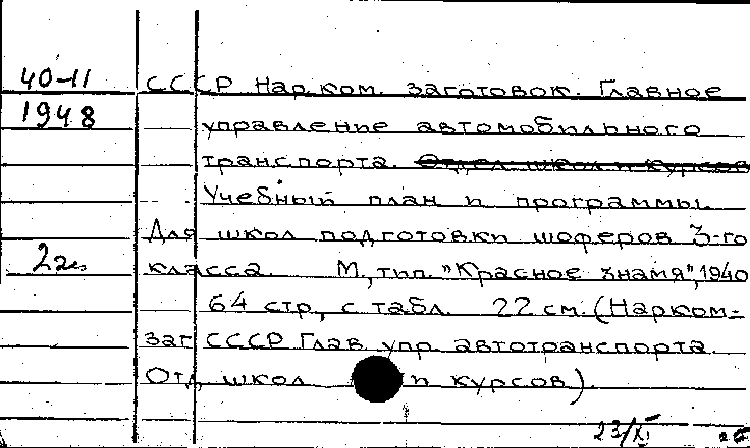 40-11 СССР Нар.ком. заготовок. Главное
1948 управление автомобильного
транспорта. Отдел школ и курсов
Учебный план и программы
Для школ подготовки шоферов 3-го
класса. М., тип. "Красное знамя", 1940
64 стр., с табл. 22 см. (Нарком-
заг СССР Глав. упр. автотранспорта.
Отд. школ и курсов).
23/XI